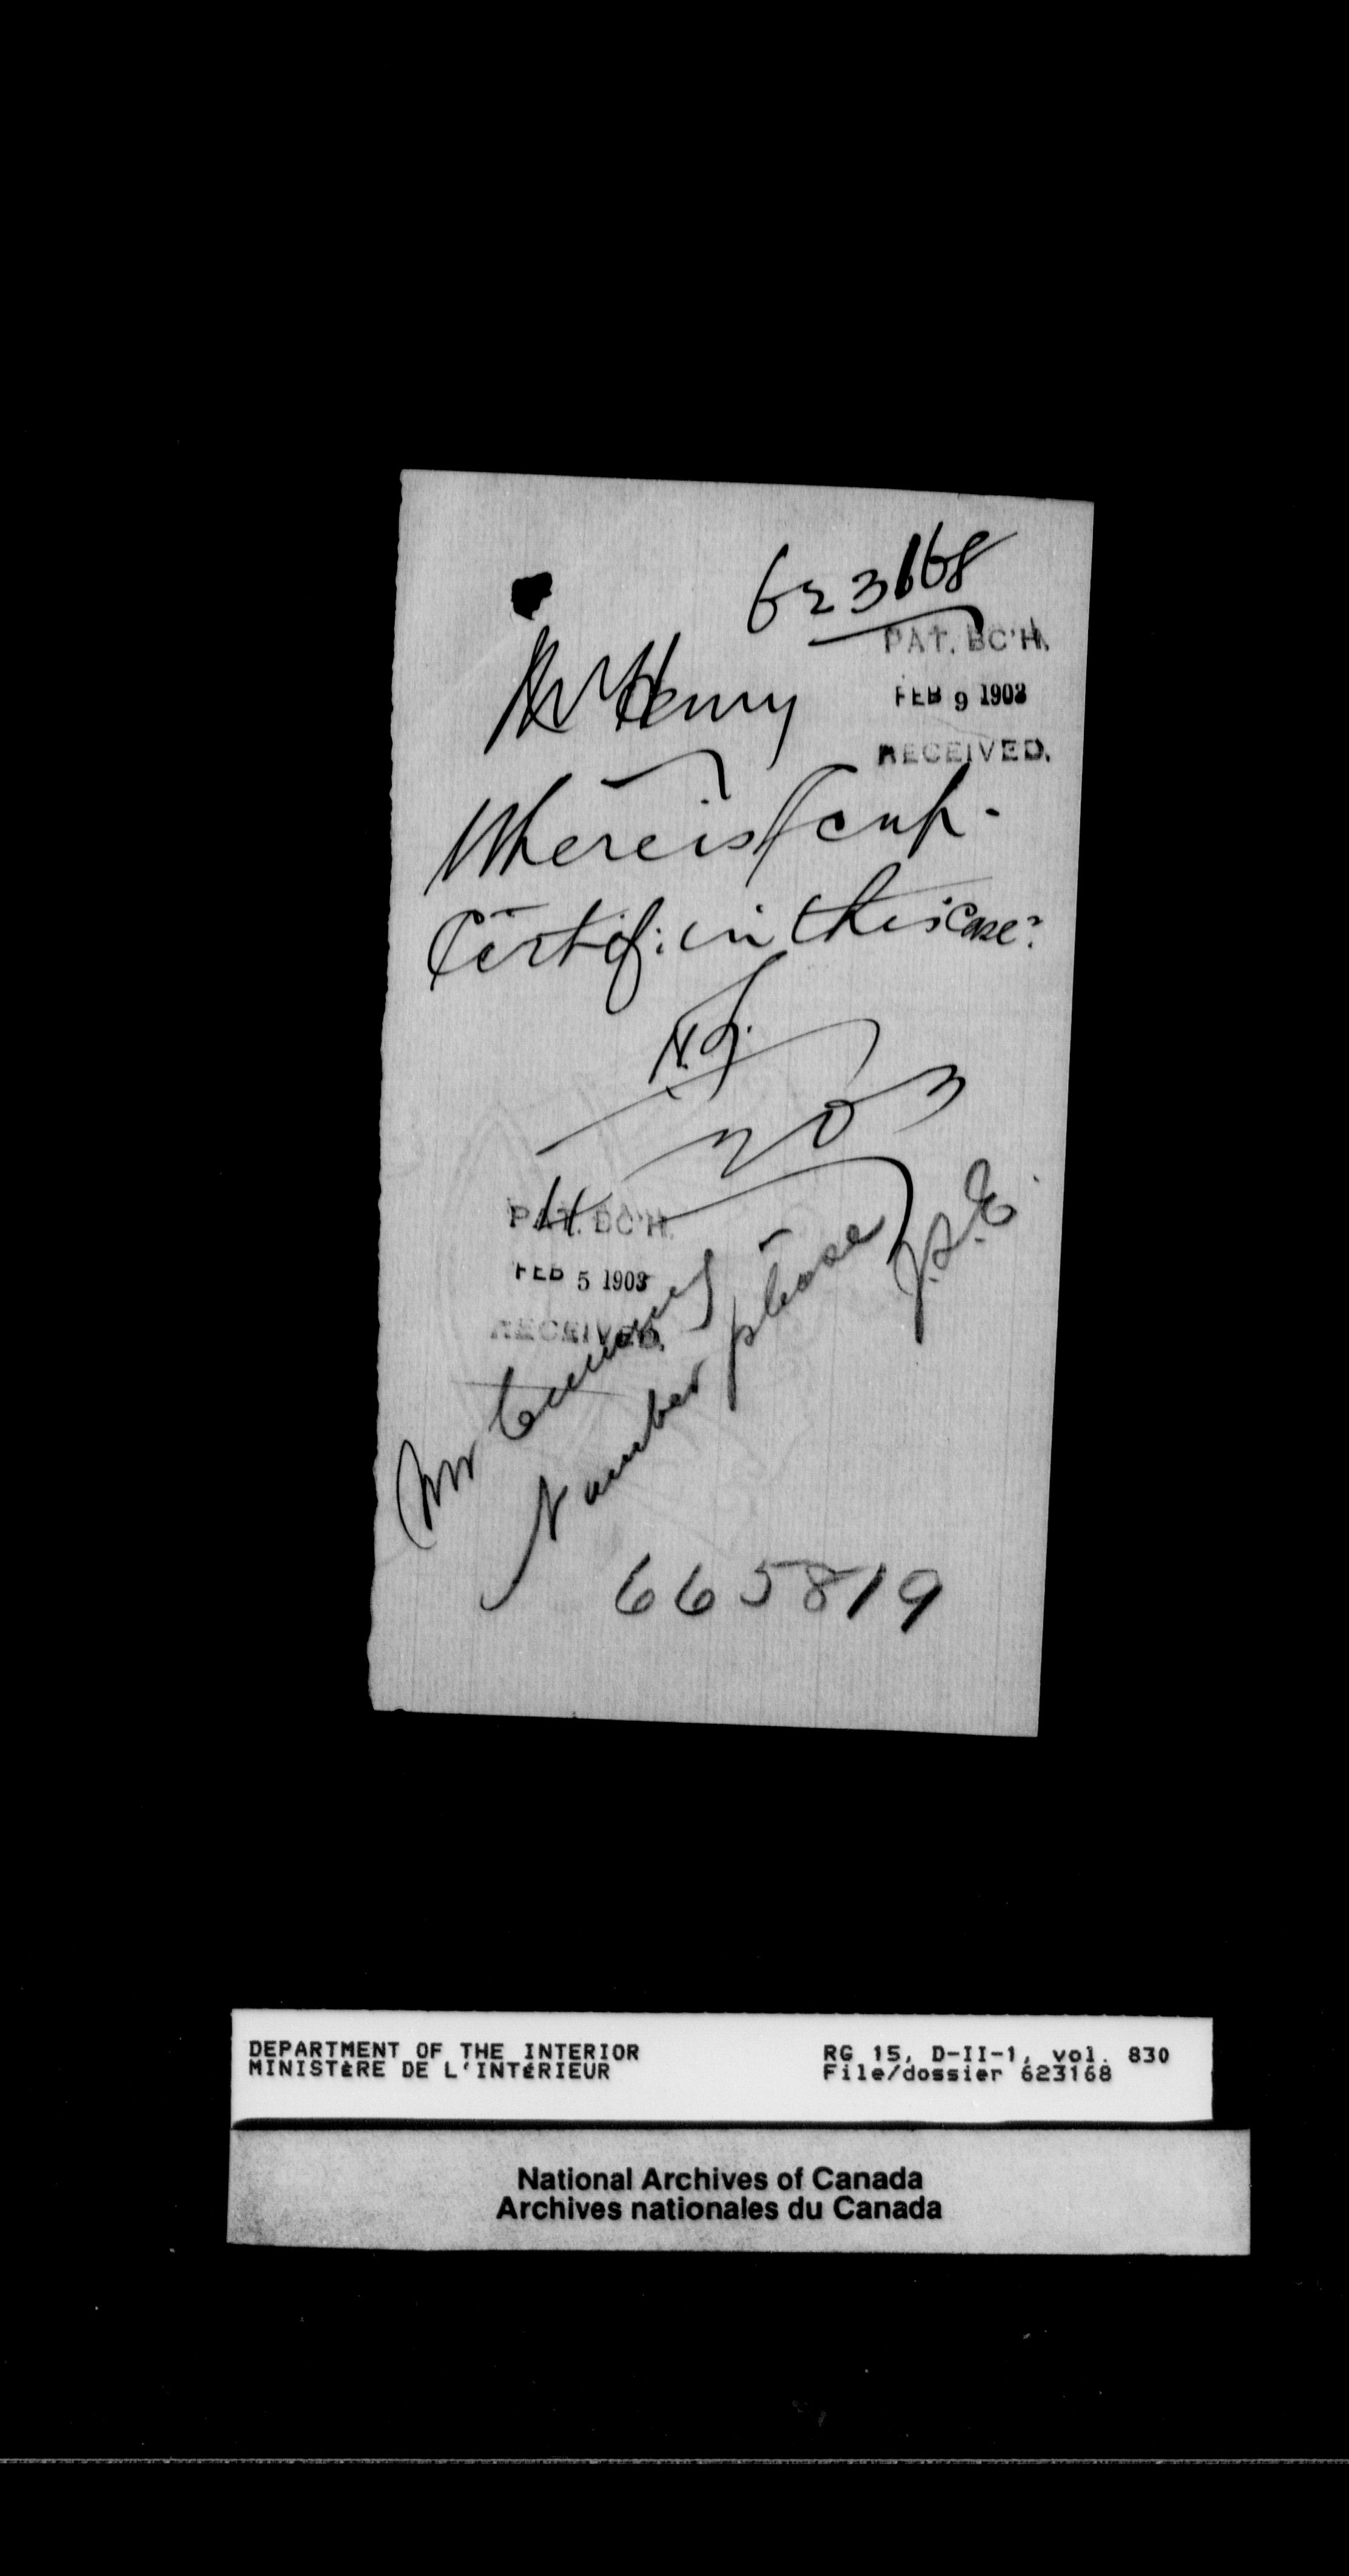 623168
PAT. BC'H.
FEB 9 1903
RECEIVED.
Mr Henry
Where is
Certif: in this case?
N.G.
4 2 03
PAT. BC'H.
FEB 5 1903
RECEIVED.
Mr
Number please
J.S.E.
665819
DEPARTMENT OF THE INTERIOR
MINISTÈRE DE L'INTÉRIEUR
RG 15, D-II-1, vol. 830
File/dossier 623168
National Archives of Canada
Archives nationales du Canada